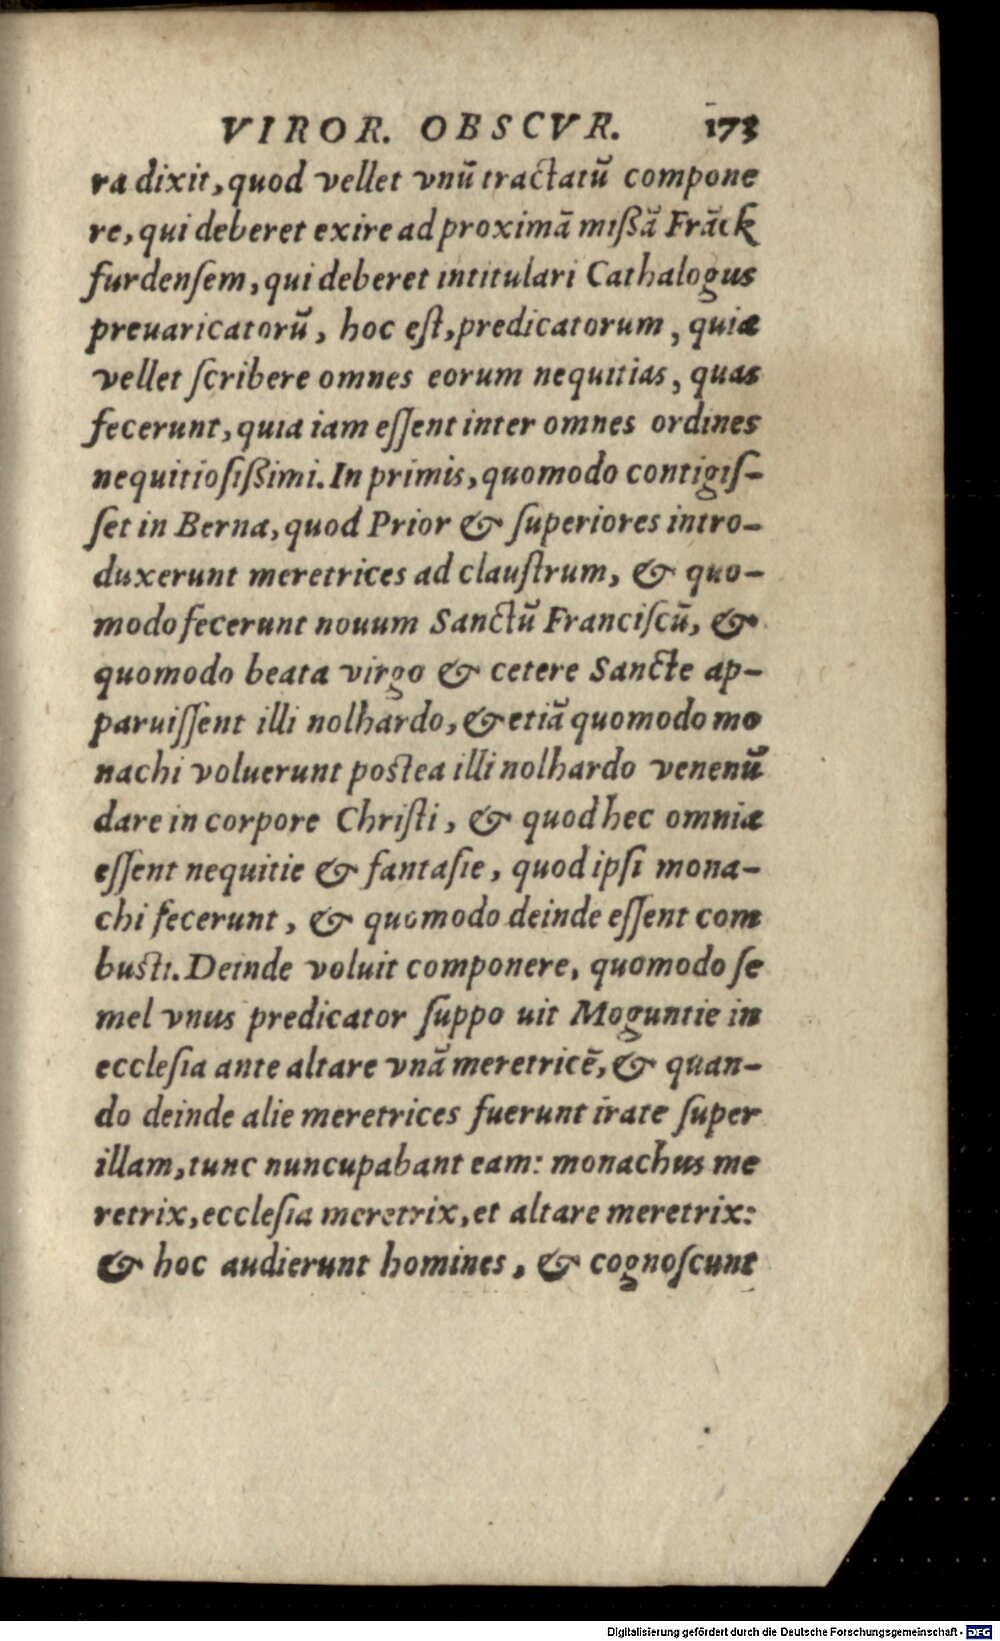 VIROR. OBSCVR. 173
ra dixit, quod vellet vnũ tractatũ compone
re, qui deberet exire ad proximã mißã Frãck
furdenſem, qui deberet intitulari Cathalogus
preuaricatorũ, hoc eſt, predicatorum, quia
vellet ſcribere omnes eorum nequitias, quas
fecerunt, quia iam eſſent inter omnes ordines
nequitioſißimi. In primis, quomodo contigiſ-
ſet in Berna, quod Prior & ſuperiores intro-
duxerunt meretrices ad clauſtrum, & quo-
modo fecerunt nouum Sanctũ Franciſcũ, &
quomodo beata virgo & cetere Sancte ap-
paruiſſent illi nolhardo, & etiã quomodo mo
nachi voluerunt postea illi nolhardo venenũ
dare in corpore Chriſti, & quod hec omnia
eſſent nequitie & fantaſie, quod ipſi mona-
chi fecerunt, & quomodo deinde eſſent com
busti. Deinde voluit componere, quomodo ſe
mel vnus predicator ſuppo uit Moguntie in
eccleſia ante altare vnã meretricẽ, & quan-
do deinde alie meretrices fuerunt irate ſuper
illam, tunc nuncupabant eam: monachus me
retrix, eccleſia meretrix, et altare meretrix:
& hoc audierunt homines, & cognoſcunt
Digitalisierung gefördert durch die Deutsche Forschungsgemeinschaft - DFG